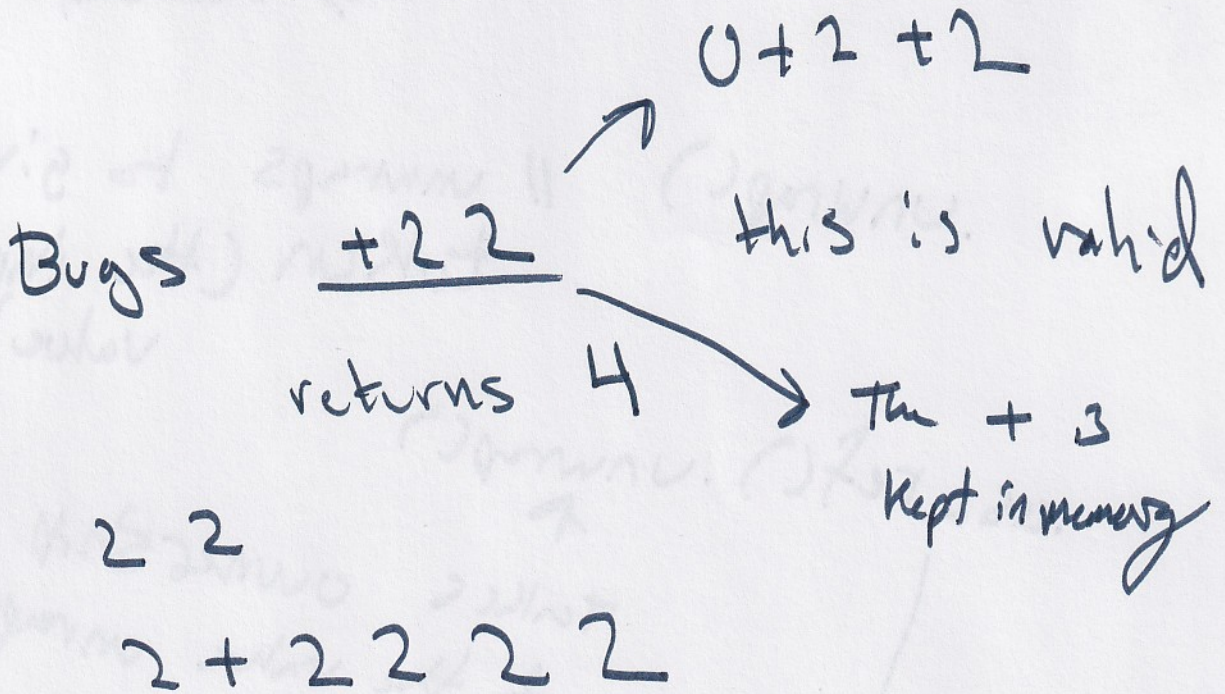 0+2 +2
Bugs +22 this is valid
returns 4
The + is
kept in memory
2 2
2 + 2 2 2 2